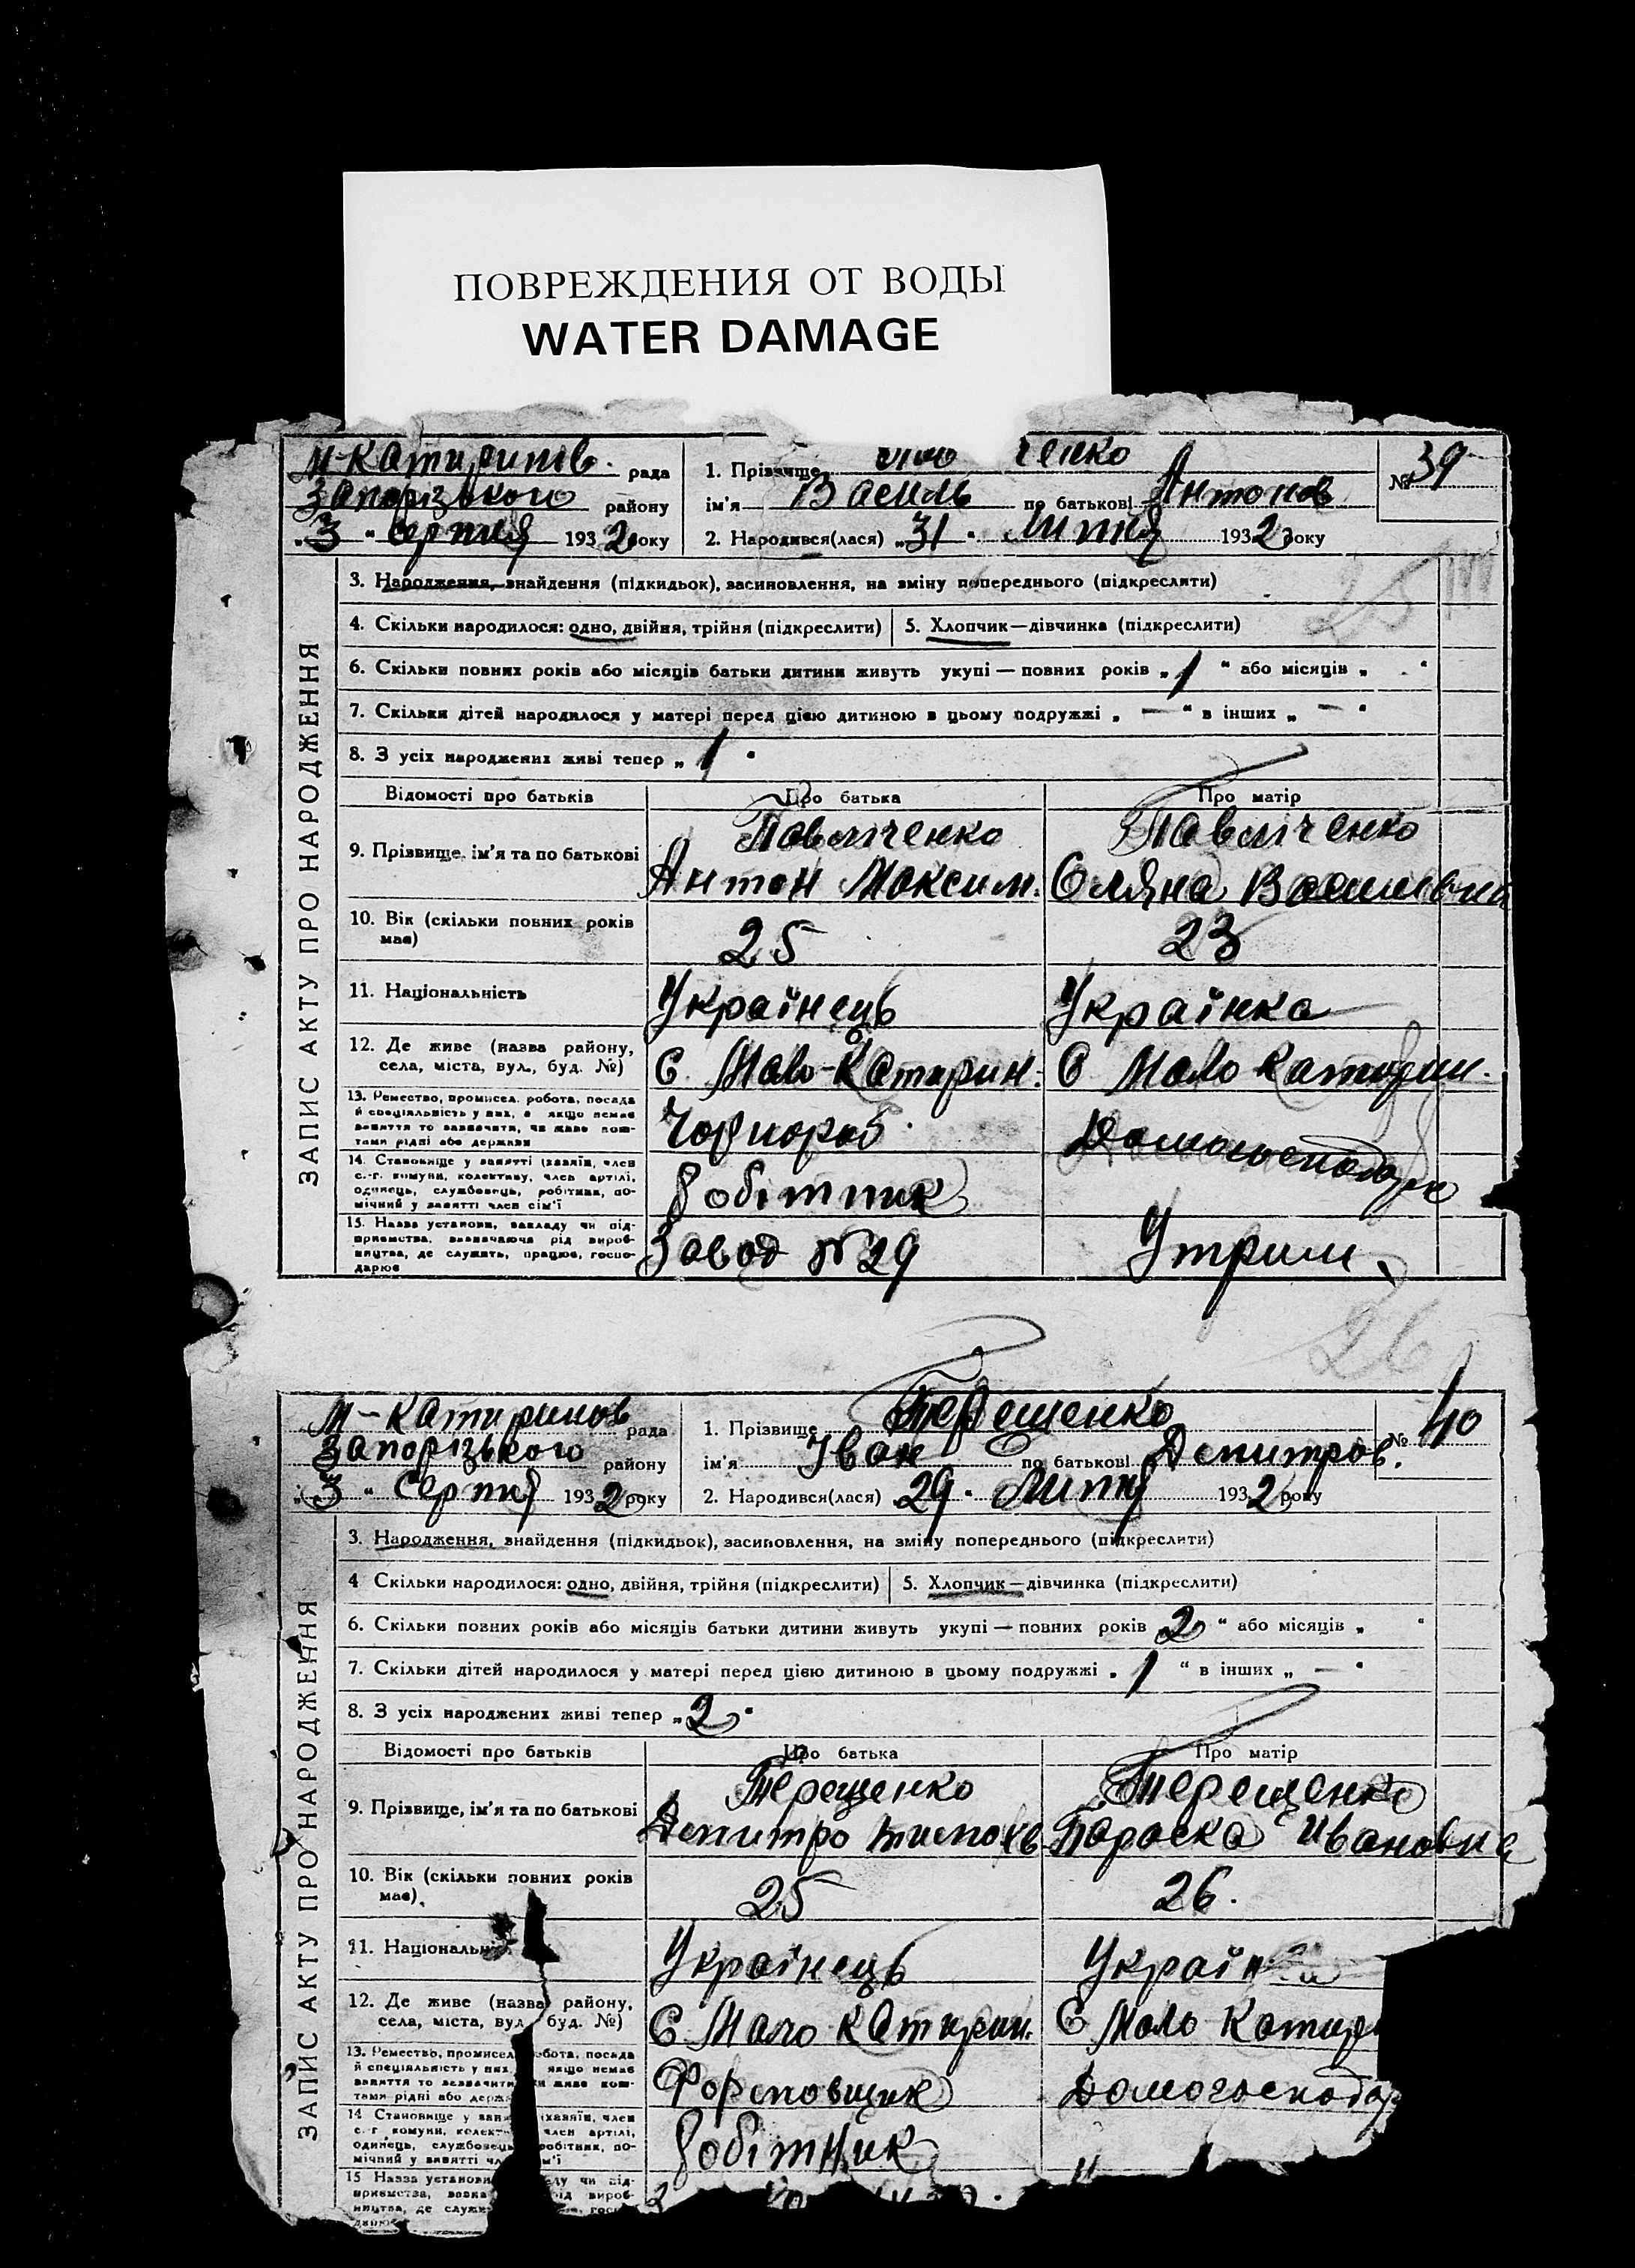 ПОВРЕЖДЕНИЯ ОТ ВОДЫ
WATER DAMAGE
М-Катиринів. рада
Запорізького району
„3" Серпня 1932 року
1. Прізвище ченко
ім'я Василь по батькові Антонов
2. Народився(лася) „31" Липня 1932 року
№ 39
25
ЗАПИС АКТУ ПРО НАРОДЖЕННЯ
3. Народження, знайдення (підкидьок), засиновлення, на зміну попереднього (підкреслити)
4. Скільки народилося: одно, двійня, трійня (підкреслити) 5. Хлопчик—дівчинка (підкреслити)
6. Скільки повних років або місяців батьки дитини живуть укупі — повних років „1" або місяців „ "
7. Скільки дітей народилося у матері перед цією дитиною в цьому подружжі „ — " в інших „ — "
8. З усіх народжених живі тепер „1"
Відомості про батьків Про батька Про матір
9. Прізвище, ім'я та по батькові Павличенко Антон Максим. Павличенко Оляна Василівна
10. Вік (скільки повних років має) 25 23
11. Національність Українець Українка
12. Де живе (назва району, села, міста, вул., буд. №) С. Мало-Катирин. С Мало Катирин.
13. Ремество, промисел, робота, посада й спеціяльність у них, а якщо немає заняття то зазначити, чи живе коштами рідні або держави Чорнороб. Домогосподарк
14. Становище у занятті (хазяїн, член с.-г. комуни, колективу, член артілі, одинець, службовець, робітник, помічний у занятті член сім'ї Робітник
15. Назва установи, закладу чи підприємства, зазначаючи рід виробництва, де служить, працює, господарює Завод №29 Утрим.
26
М-Катиринов рада
Запорізького району
„3" Серпня 1932 року
1. Прізвище Терещенко
ім'я Іван по батькові Дмитров.
2. Народився(лася) 29. Липня 1932 року
№ 40
ЗАПИС АКТУ ПРО НАРОДЖЕННЯ
3. Народження, знайдення (підкидьок), засиновлення, на зміну попереднього (підкреслити)
4 Скільки народилося: одно, двійня, трійня (підкреслити) 5. Хлопчик—дівчинка (підкреслити)
6. Скільки повних років або місяців батьки дитини живуть укупі — повних років 2 " або місяців „ "
7. Скільки дітей народилося у матері перед цією дитиною в цьому подружжі „1" в інших „ — "
8. З усіх народжених живі тепер „2"
Відомості про батьків Про батька Про матір
9. Прізвище, ім'я та по батькові Терещенко Дмитро Терещенко Параска Ивановна
10. Вік (скільки повних років має) 25 26.
11. Національні Українець Україн
12. Де живе (назва району, села, міста, вул буд. №) С Мало Катирин. С Мало Катир
13. Ремество, промисел бота, посада й спеціяльність у них, якщо немає заняття то зазначити и живе коштами рідні або держа Формовщик Домогосподар
14 Становище у зан (хазяїн, член с.-г комуни, колект член артілі, одинець, службовець робітник, помічний у занятті чл м'ї Робітник
15 Назва установи ду чи підприємства, зазна ід виробництва, де служи госп